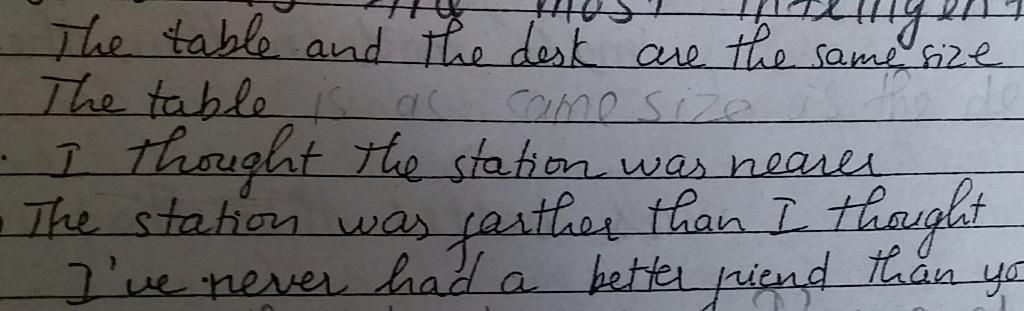 most intelligent
The table and the desk are the same size
The table is as same size is the de
I thought the station was nearer
The station was farther than I thought
I've never had a better friend than yo